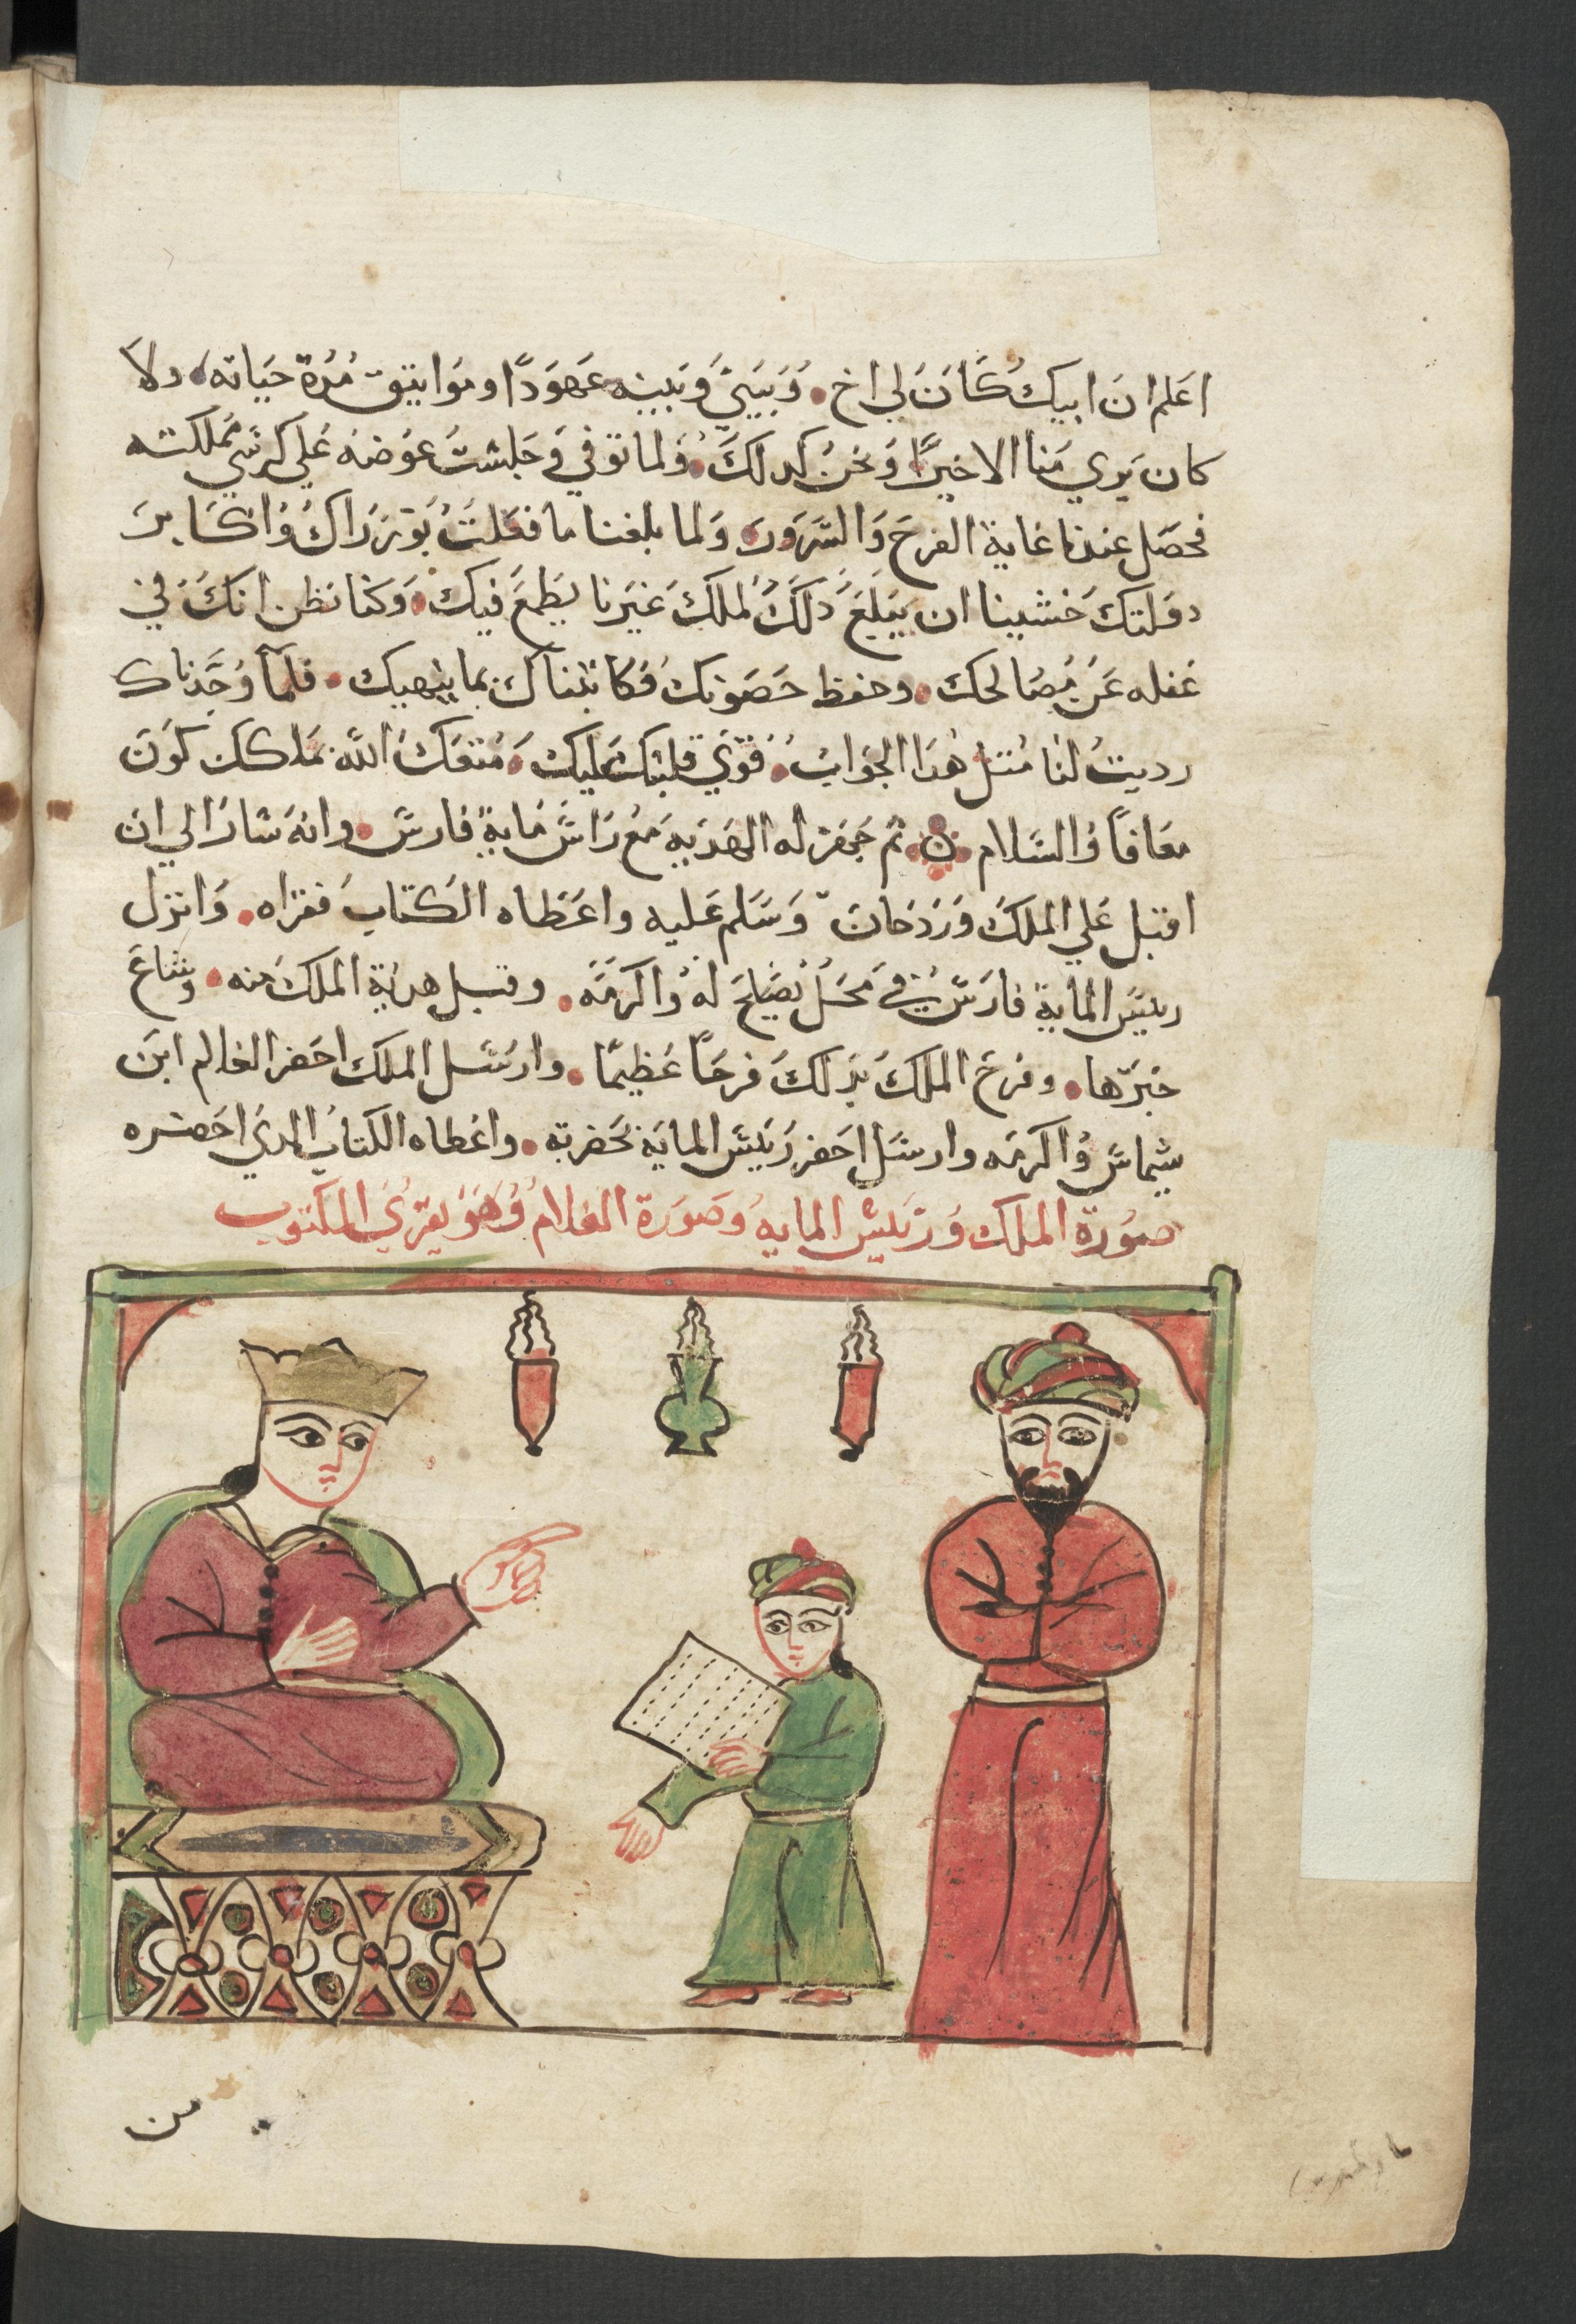 اعلم ان ابيك كان لي اخ. وبيني وبينه عهودًا ومواثيق مدة حياته، ولا
كان يري منا الا خيرًا ونحن كدلك. ولما توفي وجلست عوضه علي كرسي مملكته
فحصل عندنا غاية الفرح والسرور. ولما بلغنا ما فعلت بوزراك واكابر
دولتك خشينا ان يبلغ دلك لملك غيرنا يطمع فيك. وكنا نظن انك في
غفله عن مصالحك. وحفظ حصونك فكاتبناك بما ينهيك. فلما وجدناك
رديت لنا متل هدا الجواب. فقوي قلبك عليك. متعك الله بملكك كون
معافًا والسلام ۞ ثم جهز له الهديه مع راس ماية فارس. وانه سار الي ان
اقبل علي الملك وردخان وسلم عليه واعطاه الكتاب فقراه. وانزل
رييس الماية فارس في محل يصلح له واكرمه. وقبل هدية الملك منه. وشاع
خبرها. وفرح الملك بذلك فرحًا عظيمًا. وارسل الملك احضر الغلام ابن
شيماس واكرمه وارسل احضر رييس الماية بحضرته. واعطاه الكتاب الدي احضره
صورة الملك ورييس المايه وصورة الغلام وهو يقري المكتوب